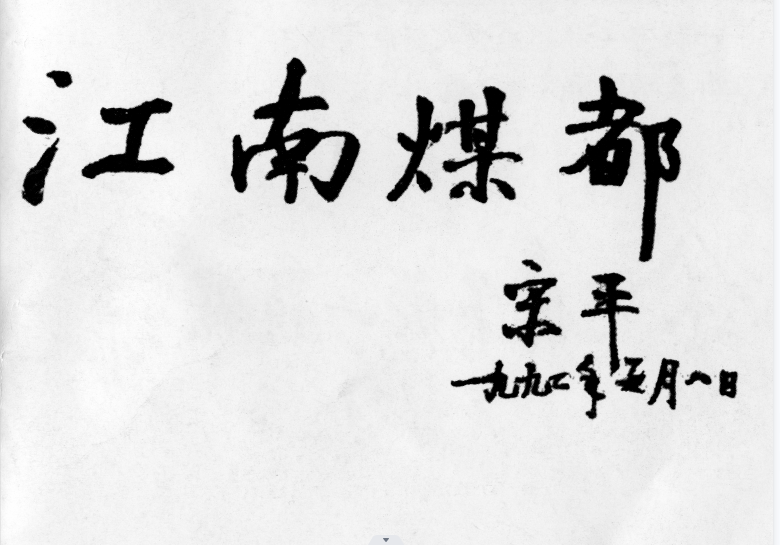 江南煤都
宋平
一九九二年五月八日